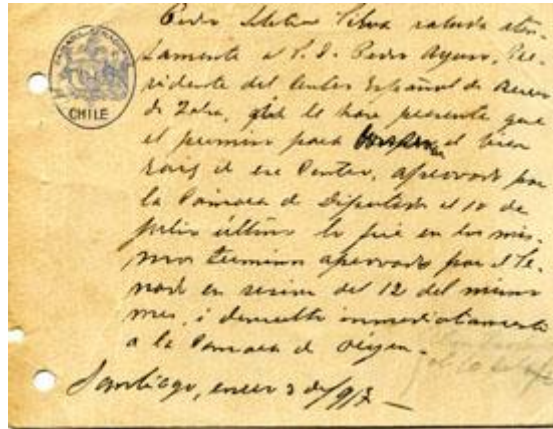 Pedro Letelier Silva saluda aten-
tamente a S. D. Pedro Ayuso, Pre-
sidente del Centro Español de
de Talca, i le hace presente que
el permiso para el bien
raiz de ese Centro, aprovado por
la Cámara de Diputados el 10 de
julio último lo fué en los mis-
mos terminos aprovado por el Se-
nado en sesion del 12 del mismo
mes, i devuelto inmediatamente
a la Camara de oríjen.
Santiago, enero 3 de 1917
CHILE